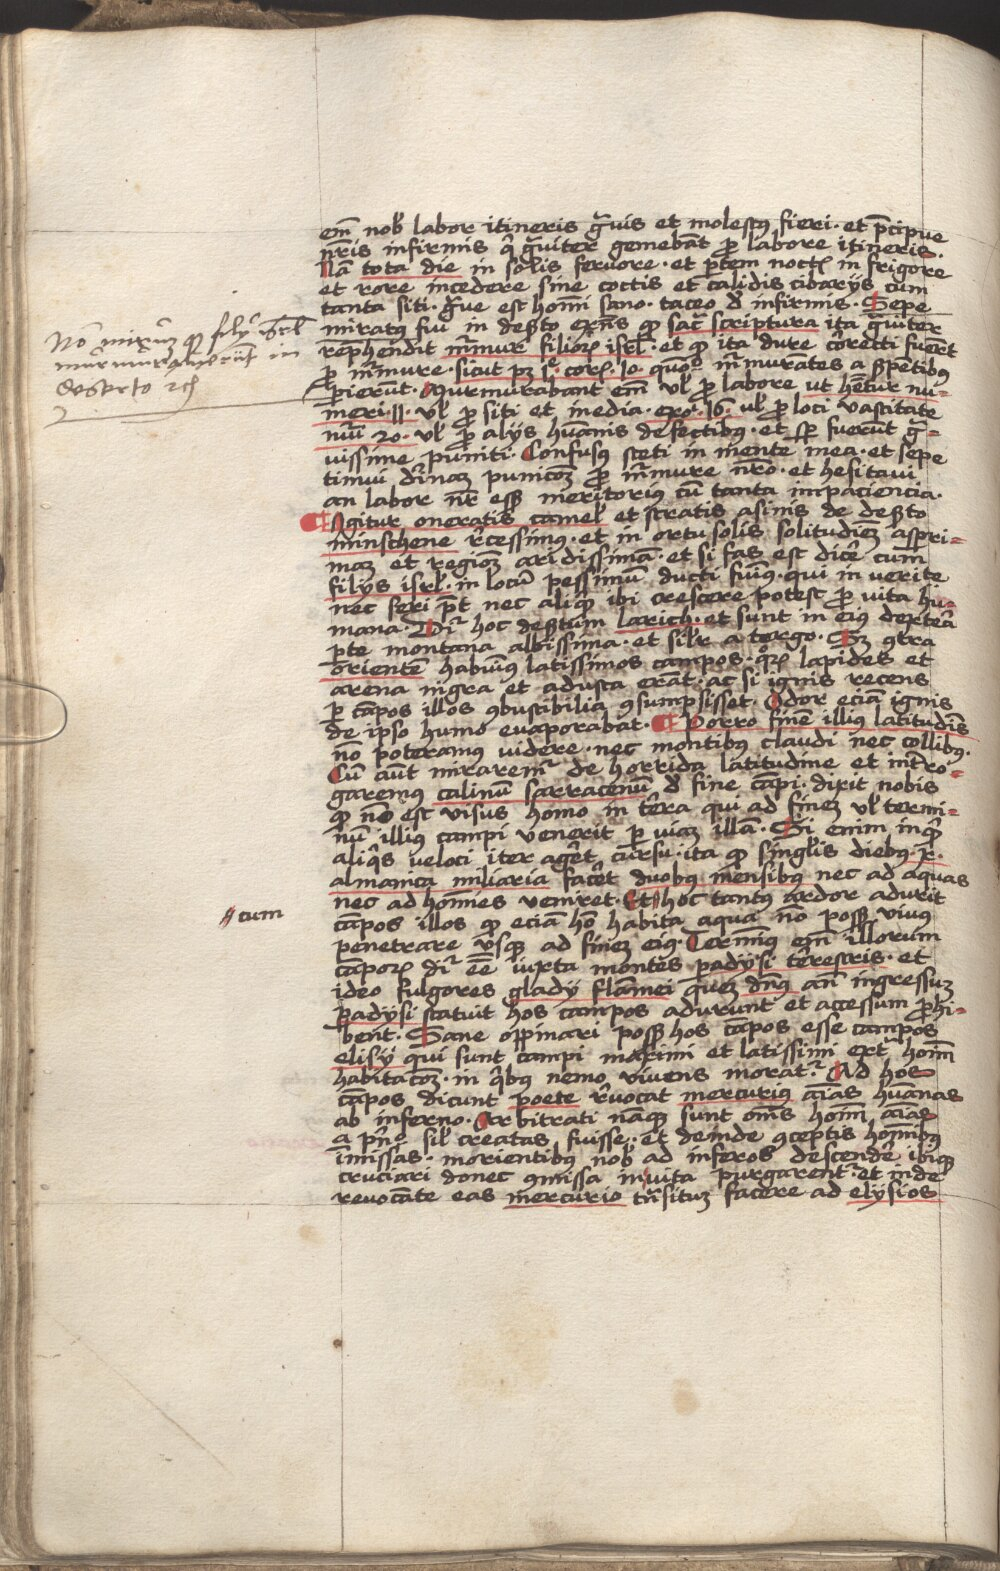 em̄ nob̄ labor itineris ḡuis et molestꝯ fieri · et p̄cipue
nr̄is infirmis q̇ ḡuiter gemebāt ꝓ labore itineris ·
Nā tota die in solis feruore · et p̄tem noctꝭ in frigore
et rore incedere sine coctis et calidis cibarijs cum
tanta siti · ḡue est homī sano · taceo d̄ infirmis · Sepe
miratꝯ fui in deẜto exn̄s ꝙ sac̄ scriptura ita ḡuiter
rep̄hendit mr̄mur filioꝝ isrl̄ · et ꝙ ita dure corecti fuer̄t
ꝓ mr̄mure · sicut pꝫ ī corꝭ · 10 · quō mr̄murātes a ẜpētibꝯ
ꝑierūt · Murmurabant em̄ ul̄ ꝓ labore ut hētur nu-
meri · 11 · ul̄ ꝓ siti et media · exo · 16 · ul̄ ꝓ loci vastitate
nūi 20 · ul̄ ꝓ alijs hūanis defectibꝯ · et sꝑ fuerūt ḡ-
uissime puniti · Confusꝯ steti in mente mea · et sepe
timui diuinaꝫ punicōꝫ ꝓ mr̄mure nr̄o · et hesitaui
an labor nr̄ esꝫ meritoriꝯ cū tanta impaciencia ·
¶ Igitur oneratis camel̄ et stratis asinis de deẜto
minschene r̄cessimꝯ · et in ortu solis solitudīeꝫ asꝑri-
maꝫ et regiōꝫ aridissimā · et si fas est dicē cum
filijs isrl̄ · in locū pessimū ducti fuimꝯ · qui in verite
nec seri pt̄ nec aliqͥd ibi crescere potest ꝓ vita hu-
mana · Dr̄ hoc deẜtum larich · et sunt in eiꝯ dextera
ꝑte montana albissima · et silr̄ a tergo · Sꝫ ꝯtra
orientē habuimꝯ latissimos campos · qͦꝝ lapides et
arena nigra et adusta erāt · ac si ignis recens
ꝑ cāpos illos ꝯbustibilia ꝯsumpsisset · Odor eciā ignis
de ipso humo euaporabat · ¶ Porro finē illiꝯ latitudīs
nō poteramꝯ videre · nec montibꝯ claudi nec collibꝯ ·
Cū aūt miraremr̄ de horrida latitudine et int̄ro-
garemꝯ calinū sarracenū d̄ fine cāpi · dixit nobis
ꝙ nō est visus homo in tērra qui ad fineꝫ ul̄ termi-
nū illiꝯ campi venerit ꝑ viaꝫ illā · Si enim inqͥt
aliqͥs veloci iter agēt cursu · ita ꝙ singl̄is diebꝯ · x̄ ·
almanica miliaria facēt duobꝯ mēnsibꝯ nec ad aquas
nec ad homīes veniret · Et hoc tantꝯ ardor adurit
cāpos illos ꝙ eciā hō habita aqua nō posꝫ vivus
penetrare usqꝫ ad fineꝫ eiꝯ · Terminꝯ em̄ illorum
cāpoꝝ dr̄ eē iuxta montes padysi tērestris · et
ideo fulgores gladij flāmei queꝫ dnꝯ an̄ ingressuꝫ
padysi statuit hos campos adurunt et accessum ꝓhi-
bent · Sane oppinari possꝫ hos cāpos esse campos
elisij qui sunt campi maximi et latissimi ext̄ homī
habitacōꝫ · in qͥbꝯ nemo vivens morat̄ · Ad hos
cāpos dicunt poete r̄vocat mercurius aīas hūanas
ab inferno · Arbitrati nāqꝫ sunt om̄s homī aīas
a pn̄o sil̄ creatas fuisse · et deinde ꝯceptis homībꝯ
īmissas · morientibꝯ nob̄ ad inferos descendē ibiqꝫ
cruciari donec ꝯmissa in vita purgarent̄ · et inde
reuocāte eas mercurio tn̄situꝫ facere ad elysios
Nō mirū ꝙ filij isrl̄
murmurauerūt in
deserto
cum